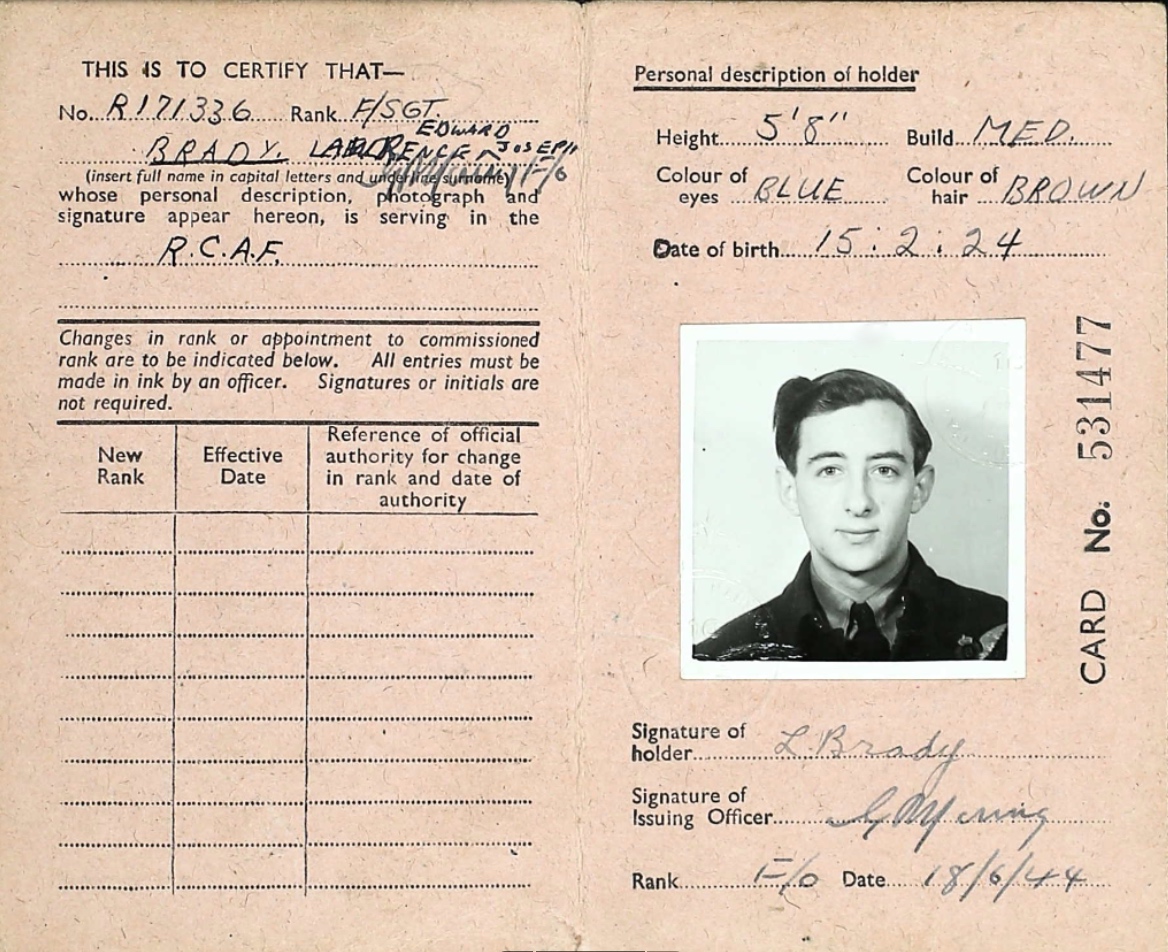 THIS IS TO CERTIFY THAT—
No. R171336 Rank F/SGT.
EDWARD
BRADY, LAWRENCE ^ JOSEPH
(insert full name in capital letters and underline surname) F/O
whose personal description, photograph and
signature appear hereon, is serving in the
R.C.A.F.
Changes in rank or appointment to commissioned
rank are to be indicated below. All entries must be
made in ink by an officer. Signatures or initials are
not required.
New Rank
Effective Date
Reference of official
authority for change
in rank and date of
authority
Personal description of holder
Height 5'8" Build MED.
Colour of eyes BLUE Colour of hair BROWN
Date of birth 15:2:24
CARD No. 531477
Signature of
holder L. Brady
Signature of
Issuing Officer
Rank F/O Date 18/6/44